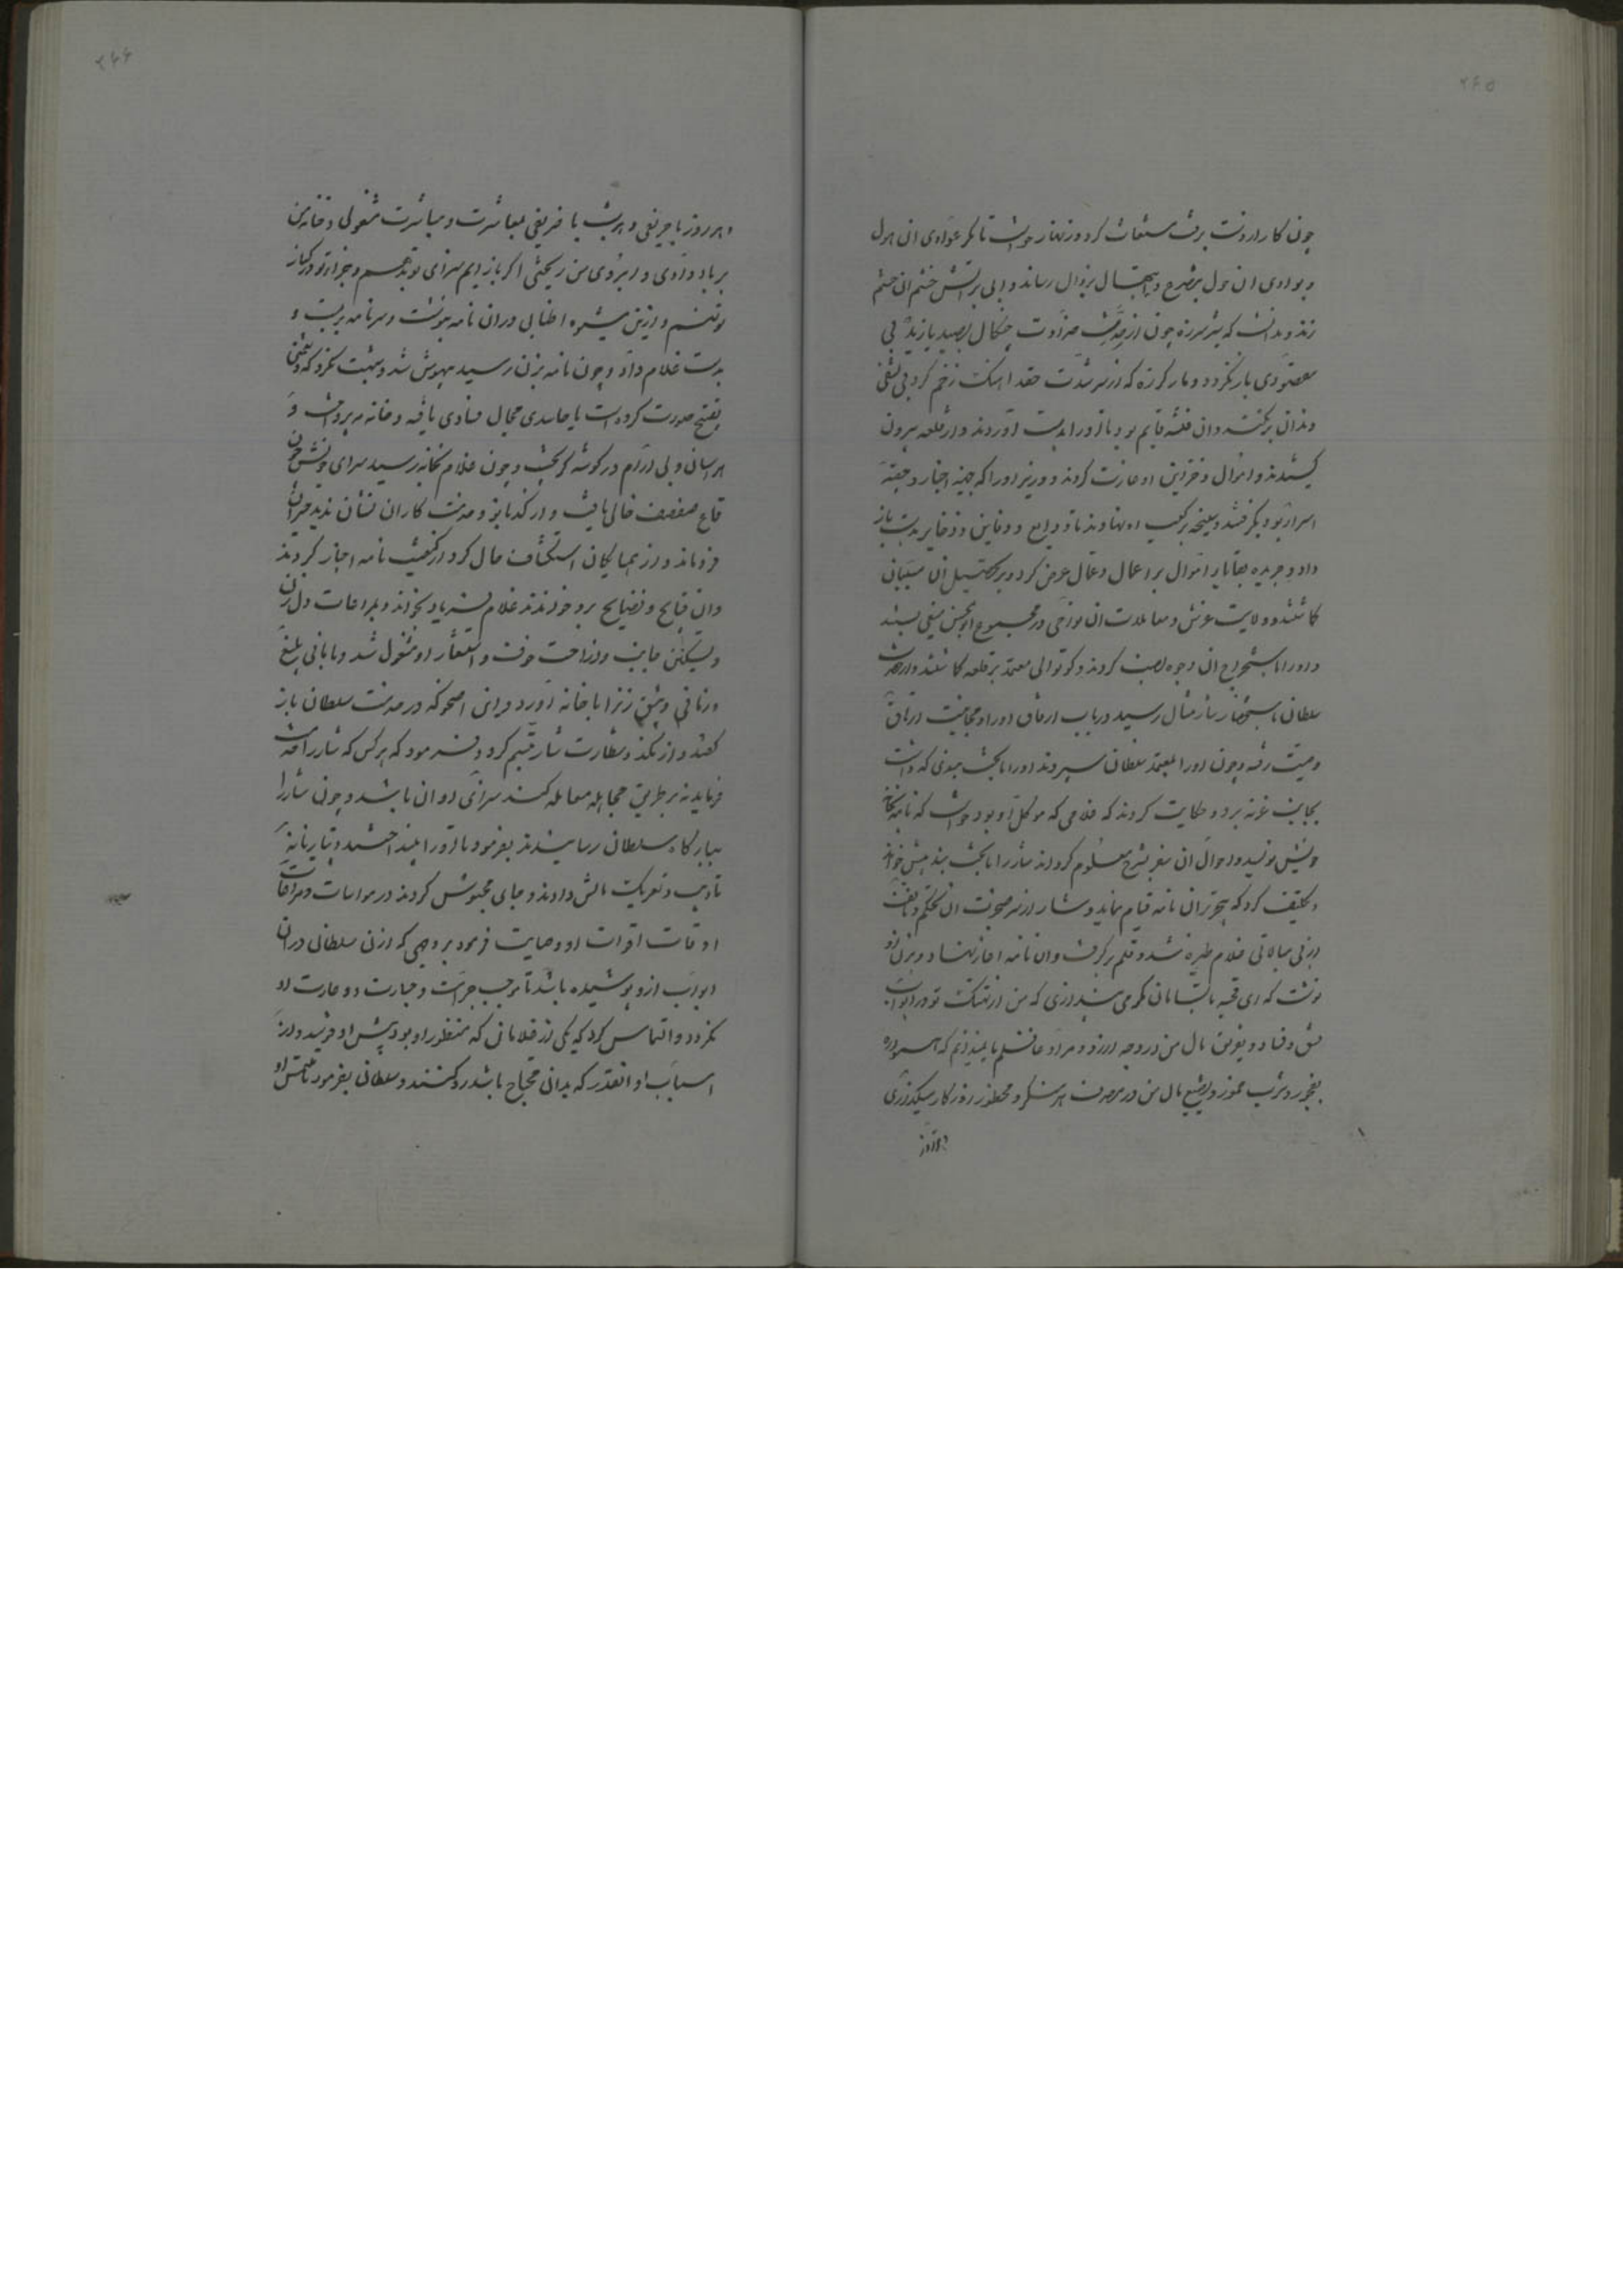 ۲۶۵
چون کار از دست برفت استغاثت کرد و زنهار خواست تا مگر عوادی ان هول
و بوادی ان هول بتضرع و ابتهال بزوال رساند و ابی بر اتش خشم ان حشم
زند و ندانست که شیر شرزه چون از ضراوت چنگال بصید یازید بی
مقصودی باز نگردد و مار گرزه که از سر شدت حقد اهنگ زخم کرد بی تشفی
دندان بر نکند و ان فتنه قایم بود تا او را بدست آوردند و از قلعه بیرون
کشیدند و اموال و خزاین او غارت کردند و وزیر او را که جهینه اخبار و حقیبه
اسرار بود بگرفتند و شکنجه بر کعب او نهادند تا ودایع و دفاین و ذخایر بدست باز
داد و جریده بقایا و اموال بر اعمال و عمال عرض کرد و بر تحصیل ان
کاشتند و ولایت غرش و معاملات ان نواحی در مجموع ابوالحسن منیعی بستند
و او را باستخراج ان وجوه نصب کردند و کوتوالی معتمد بر قلعه کاشتند و از حضرت
سلطان باستحضار شار مثال رسید در باب ارفاق او و مجانبت ارهاق
وصیت رفته و چون او را بمعتمد سلطان سپردند او را با تخت بندی که داشت
بجانب غزنه برد و حکایت کردند که غلامی که موکل او بود خواست که نامه بخانه
خویش نویسد و احوال ان سفر بشرح معلوم کرداند شار را با تخت بند پیش خواند
و تکلیف کرد که بتحریر ان نامه قیام نماید و شار از سر ضجرت ان تحکم و
از بی مبالاتی غلام طیره شد و قلم بر گرفت و ان نامه اغاز نهاد و بزن او
نوشت که ای قحبه نابسامان مگر می پنداری که من از تهتک تو در ابواب
فسق و فساد و تفویت مال من در وجه ارزو و مراد غافلم یا نمیدانم که همواره
بفجور و شرب خمور و تضییع مال من در مصرف هر منکر و محظور روزگار میگذاری
و هر روز
۲۶۶
و هر روز با حریفی و هر شب با ظریفی بمعاشرت و مباشرت مشغولی و خانه من
بر باد دادی و ابروی من ریختی اگر باز ایم سزای تو بدهم و جزای تو در کنار
تو نهم و ازین شیوه اطنابی در ان نامه بنوشت و سر نامه ببست و
بدست غلام داد و چون نامه بزن رسید بیهوش شد و شبهت نکرد که دشمنی
تقبیح صورت کرده است یا حاسدی مجال فسادی یافته و خانه بپرداخت و
هراسان و بی ارام در گوشه گریخت و چون غلام بخانه رسید سرای خویش چون
قاع صفصف خالی یافت و از کدبانو و خدمت کاران نشان ندید حیران
فرو ماند و از همسایگان استکشاف حال کرد از کیفیت نامه اخبار کردند
و ان قبایح و فضایح برو خواندند غلام فریاد بر خواند و بمراعات دل زن
و تسکین جانب و ازاحت خوف و استشعار او مشغول شد و با بانی بلیغ
و زنانی وثیق زن را با خانه آورد و این اضحوکه در خدمت سلطان باز
گفتند و از نکته و شطارت شار تبسم کرد و فرمود که هر کس که شار را خدمت
فرماید نه بر طریق مجامله معامله کند سزای او ان باشد و چون شار را
ببارگاه سلطان رسانیدند بفرمود تا او را بیند اختند و بتازیانه
تادیب و تعریک مالش دادند و جای محبوس کردند در مواسات و مراعات
اوقات اقوات او وصایت فرمود بر وجهی که اذن سلطانی در ان
ابواب ازو پوشیده باشد تا موجب جرأت و جسارت و دعارت او
نگردد و التماس کرد که یکی از غلامانی که منظور او بود پیش او فرستد و از
اسباب او انقدر که بدان محتاج باشد رد کنند و سلطان بفرمود تا ملتمس او